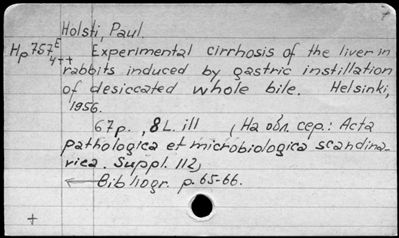 Holsti, Paul.
Hp 757 E Experimental cirrhosis of the liver in
4++ rabbits induced by gastric instillation
of desiccated whole bile. Helsinki,
1956.
67p., 8 L. ill (На обл. сер.: Acta
pathologica et microbiologica scandina-
vica. Suppl. 112)
← Bibliogr. p. 65-66.
+